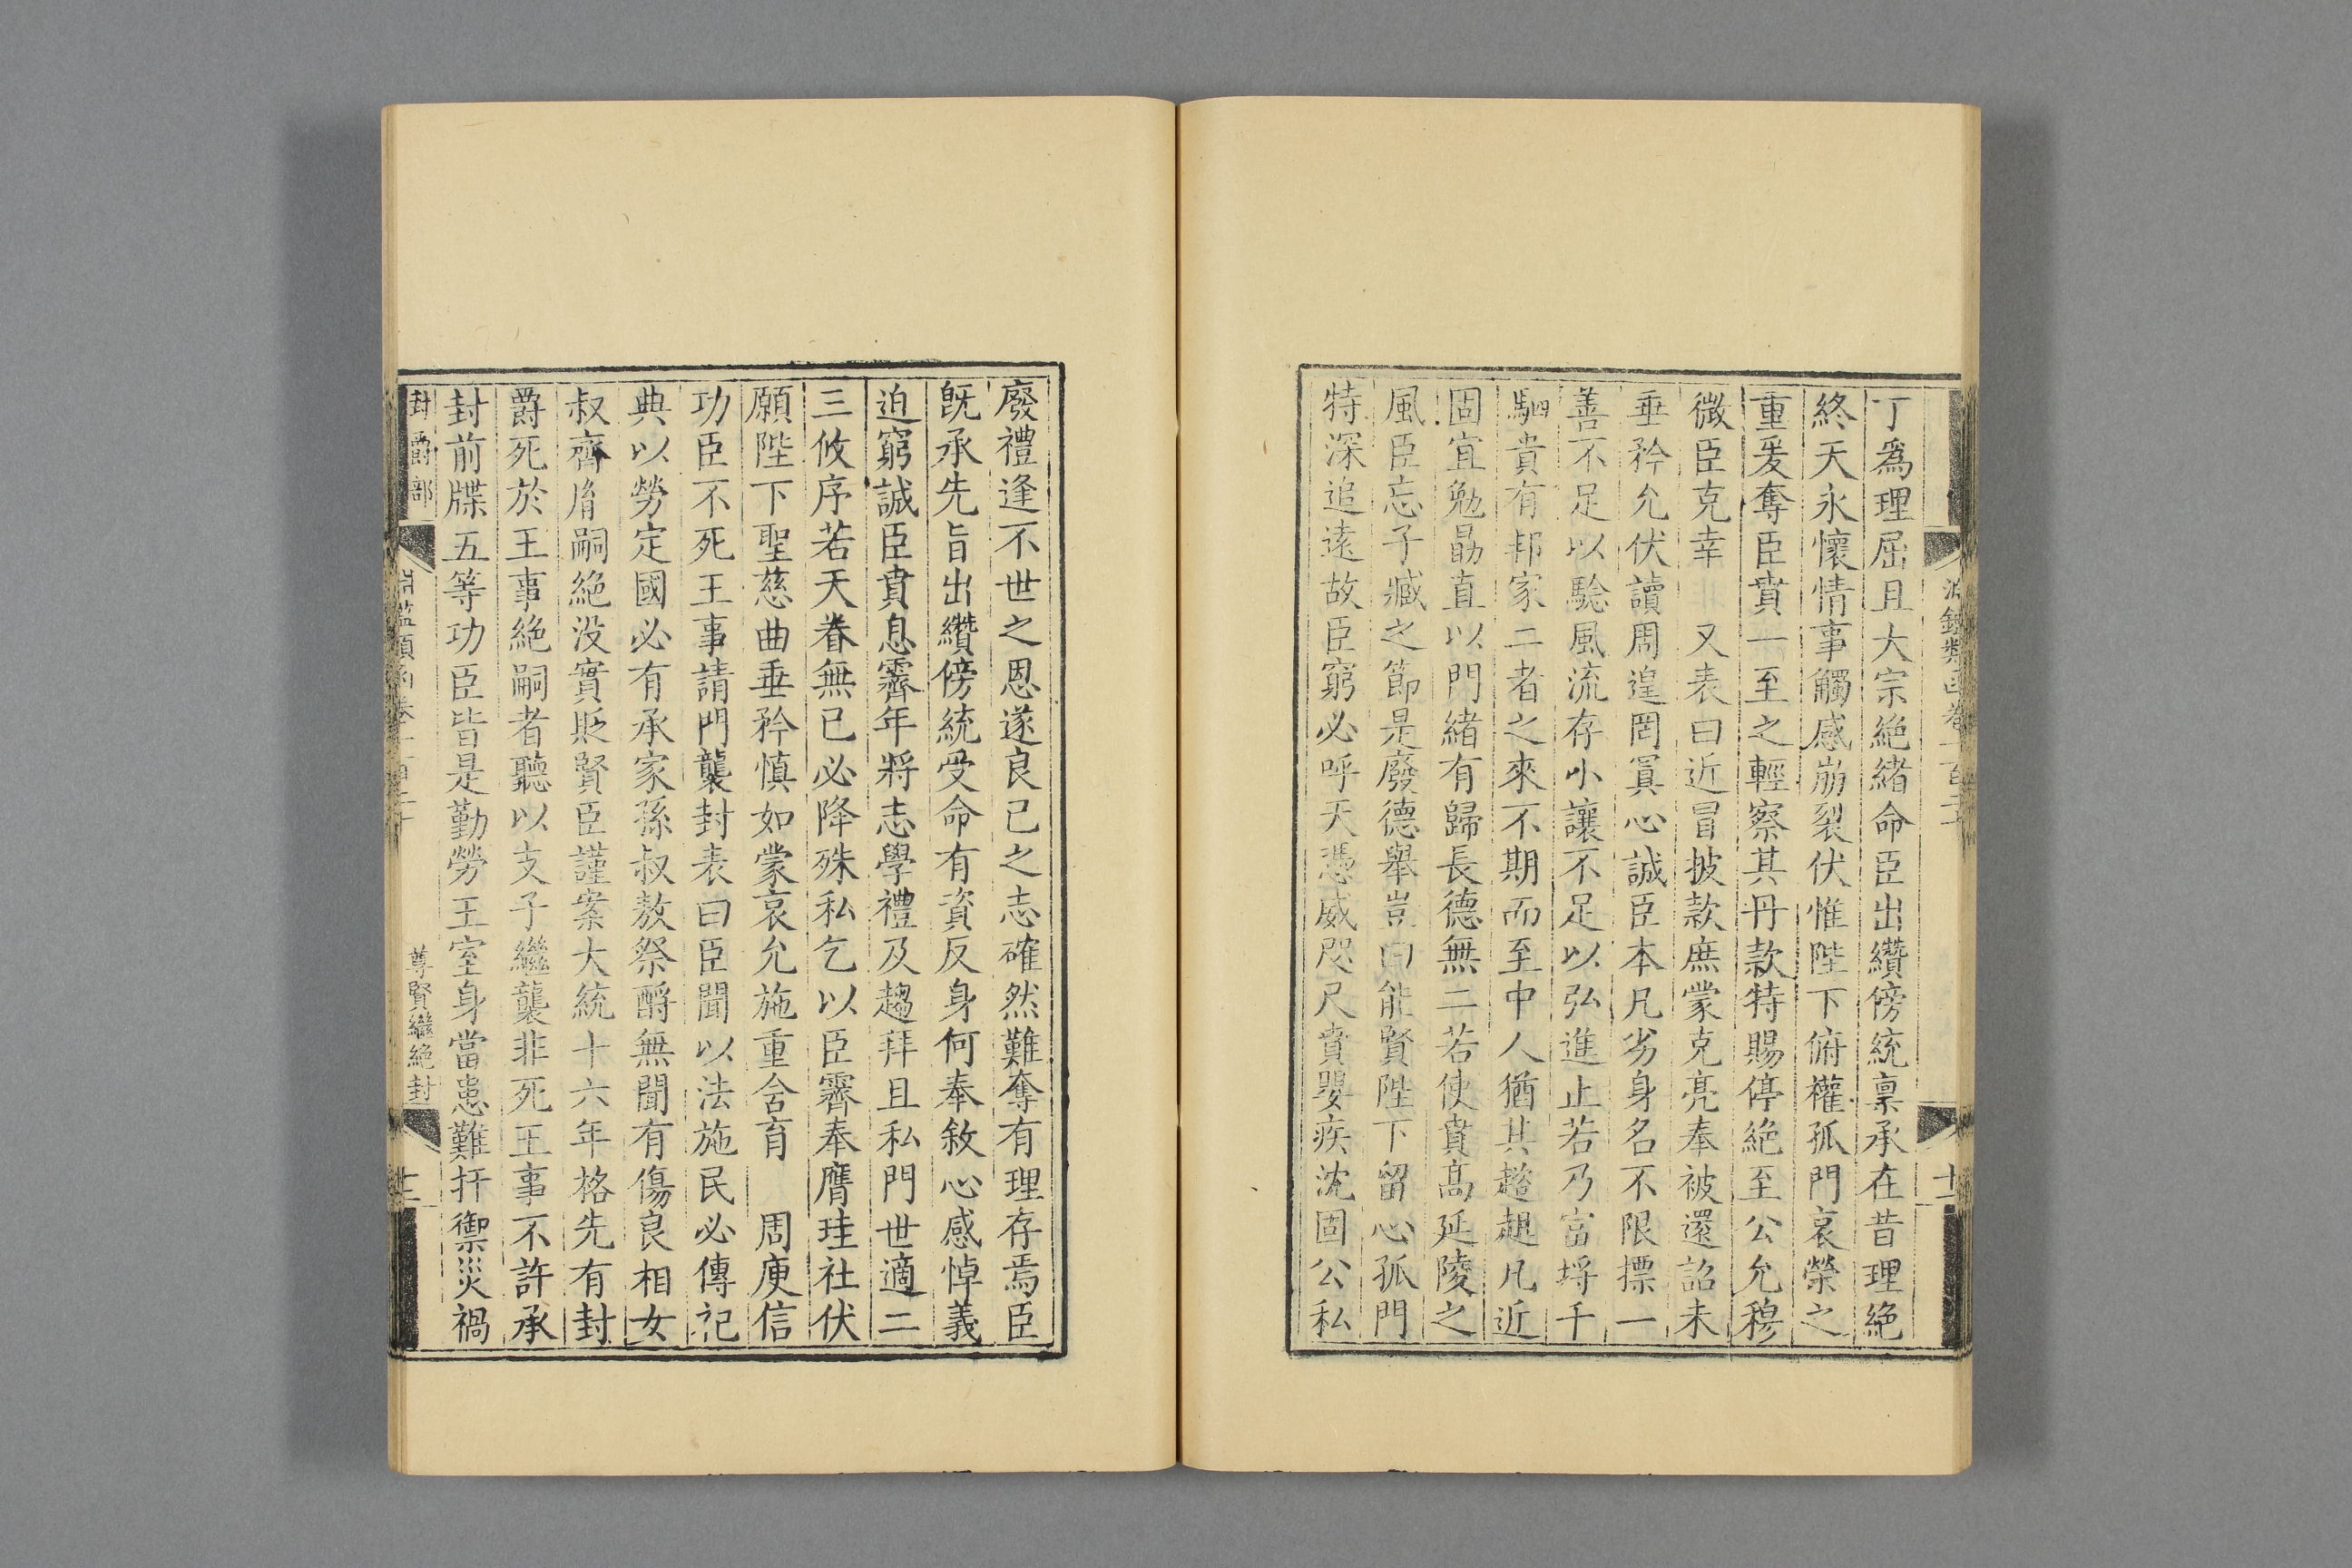 丁爲理屈且大宗絶緒命臣出纘傍統稟承在昔理絶
終天永懷情事觸感崩裂伏惟陛下俯權孤門哀榮之
重爰奪臣賁一至之輕察其丹款特賜停絶至公允穆
微臣克幸 又表曰近冒披款庶蒙克亮奉被還詔未
垂矜允伏讀周遑罔寘心誠臣本凡劣身名不限摽一
善不足以驗風流存小讓不足以弘進止若乃富埒千
駟貴有邦家二者之來不期而至中人猶其趑趄凡近
固宜勉勗直以門緒有歸長德無二若使賁高延陵之
風臣忘子臧之節是廢德舉豈曰能賢陛下留心孤門
特深追遠故臣窮必呼天憑威咫尺賁嬰疾沈固公私
廢禮逢不世之恩遂良已之志確然難奪有理存焉臣
旣承先旨出纘傍統受命有資反身何奉敘心感悼義
迫窮誠臣賁息霽年將志學禮及趨拜且私門世適二
三攸序若天眷無已必降殊私乞以臣霽奉膺珪社伏
願陛下聖慈曲垂矜慎如蒙哀允施重含育 周庾信
功臣不死王事請門襲封表曰臣聞以法施民必傳祀
典以勞定國必有承家孫叔敖祭酹無聞有傷良相女
叔齊胤嗣絶没實貶賢臣謹案大統十六年格先有封
爵死於王事絶嗣者聽以支子繼襲非死王事不許承
封前牒五等功臣皆是勤勞王室身當患難扞禦災禍
封爵部
尊賢繼絶封